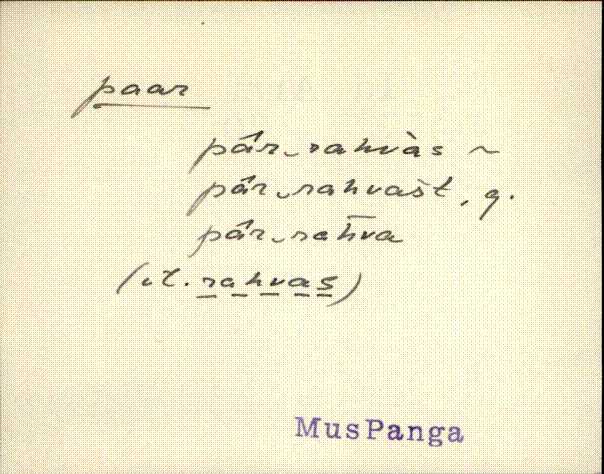 paar
pâr‿rahvàs ~
pâr‿rahvašt, g.
pâr‿rah̅va
(vt. rahvas)
MusPanga